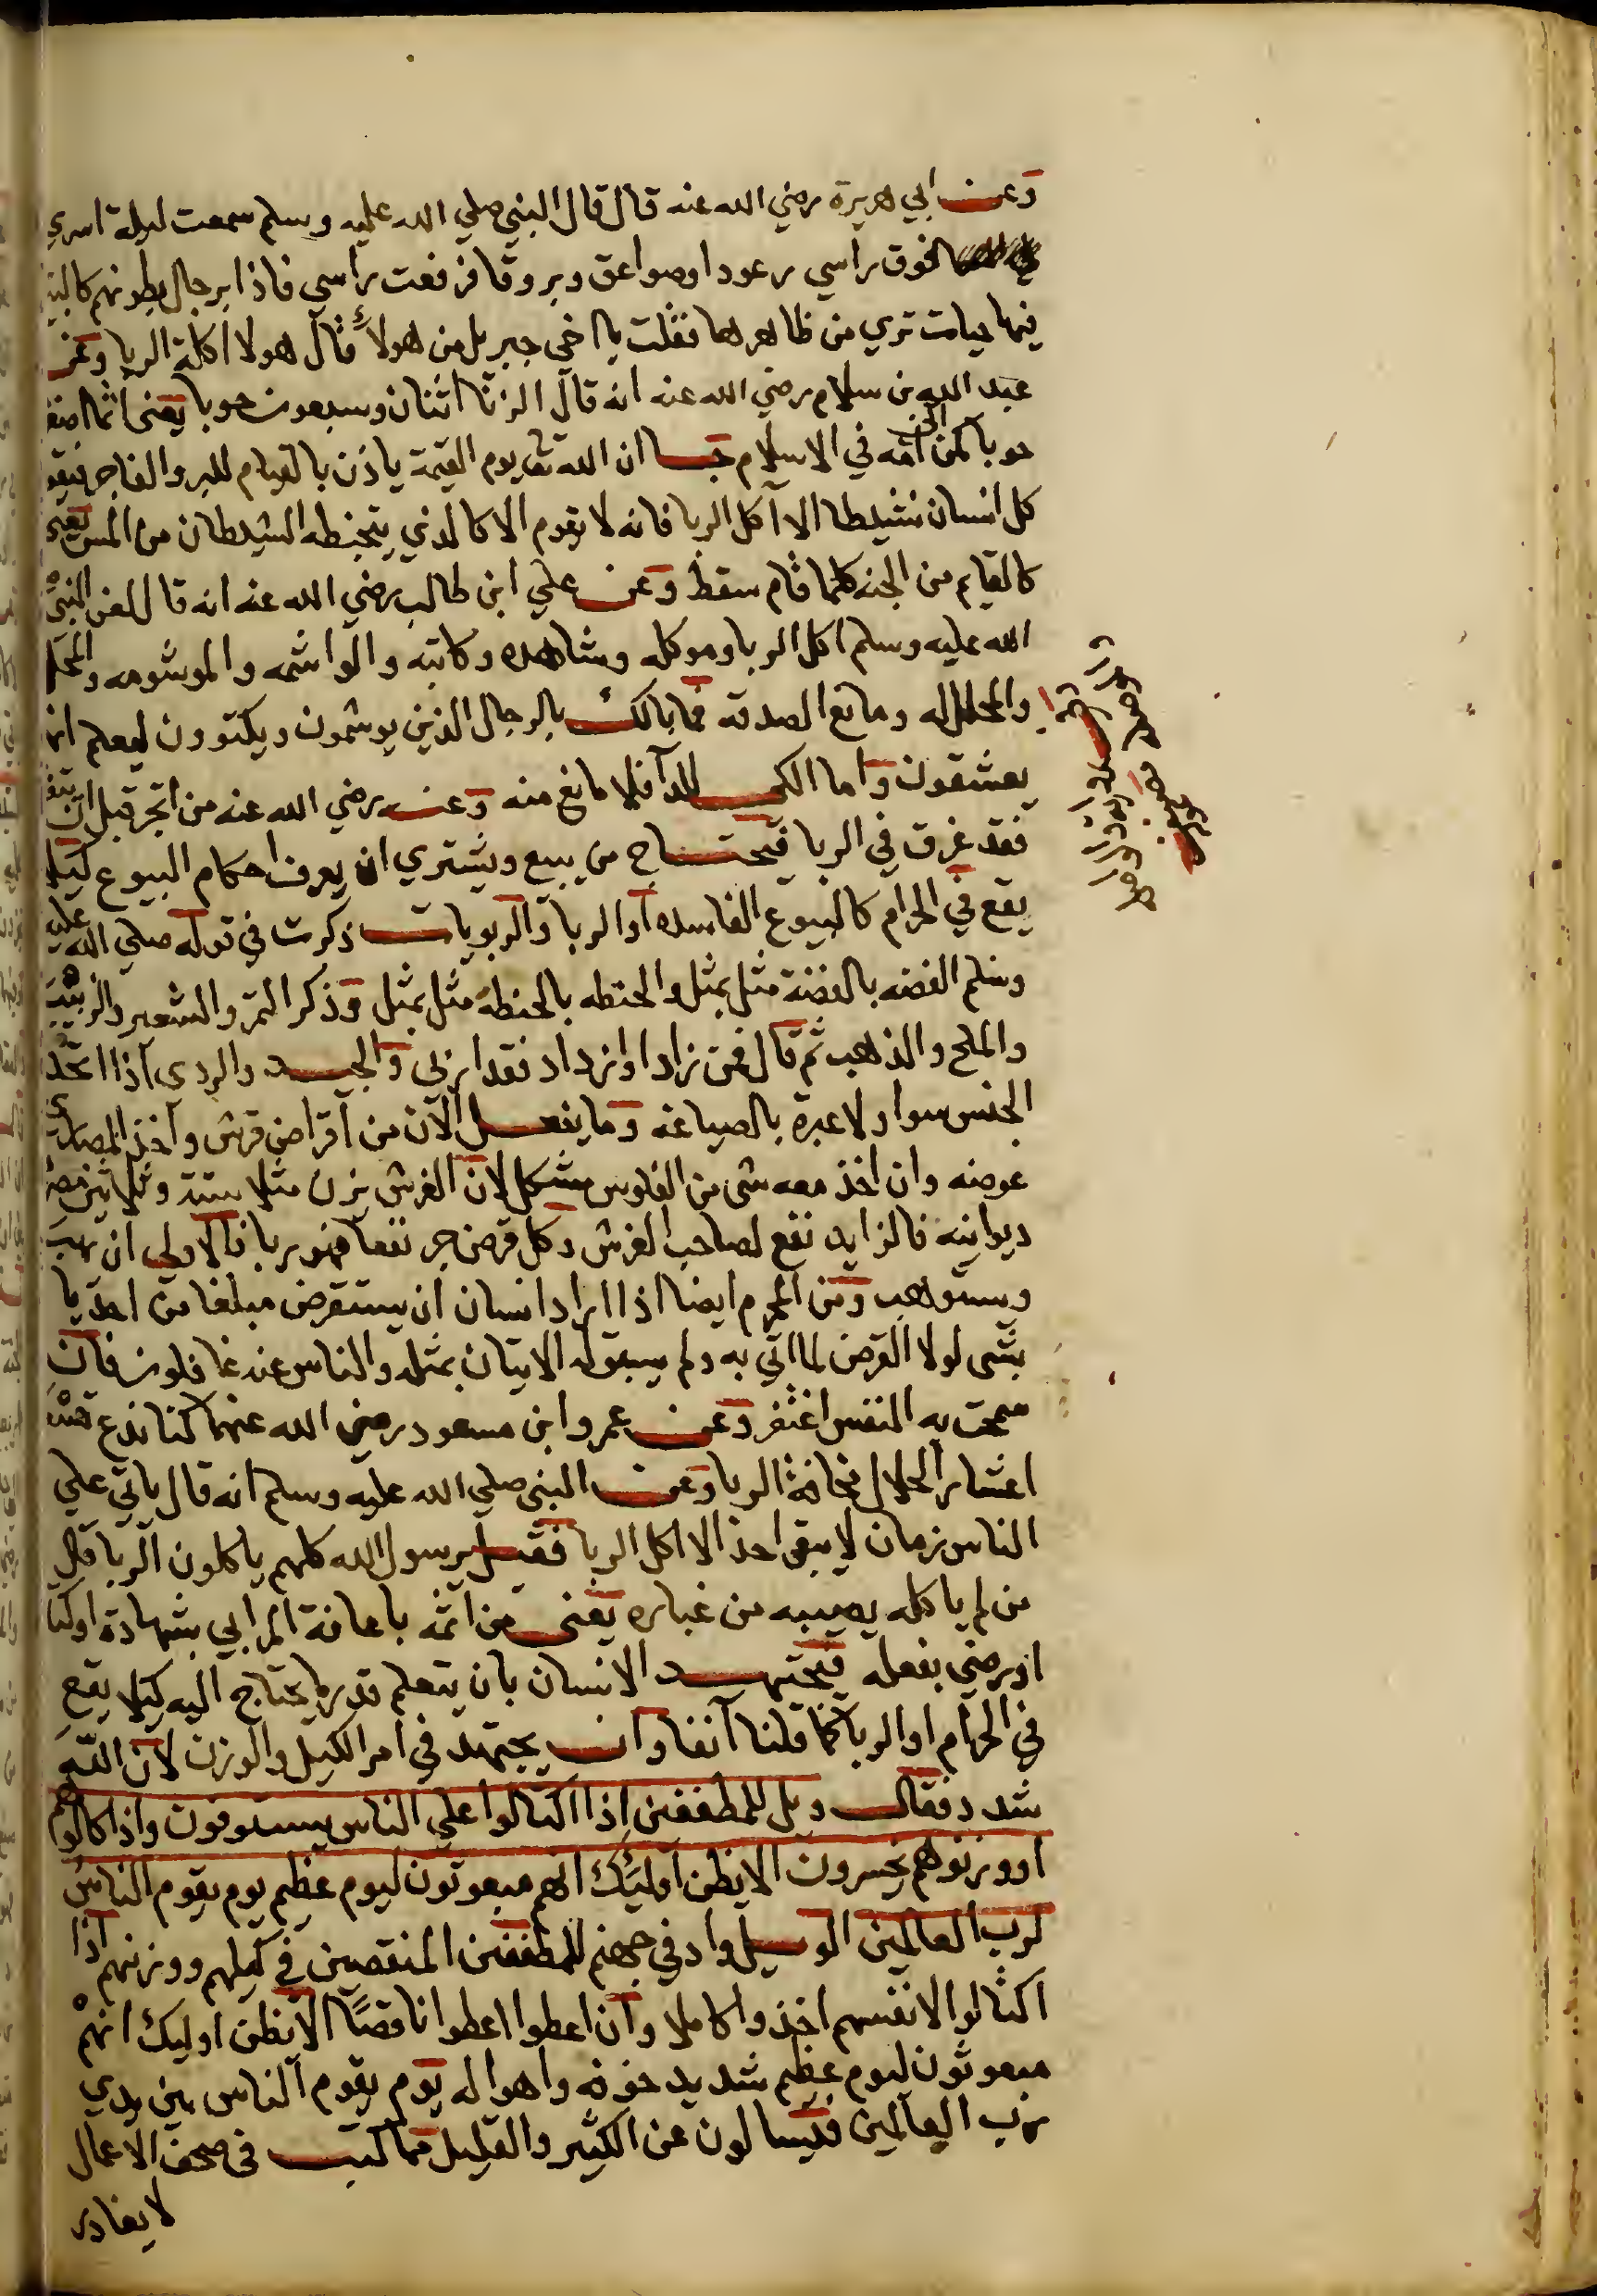 وعن ابي هريرة رضي الله عنه قال قال النبي صلي الله عليه وسلم سمعت ليلة اسري
فوق راسي رعودا وصواعق وبروقا فرفعت راسي فاذا برجال بطونهم كالبيت
فيها حيات تري من ظاهرها فقلت يا اخي جبريل من هولاء قال هولا اكلة الربا وعن
عبد الله بن سلام رضي الله عنه انه قال الربا اثنان وسبعون حوبا يعني اثما اصغر
حوبا كمن اتي امه في الاسلام ان الله تعالى يوم القيمة ياذن بالقيام للبر والفاجر فيقوم
كل انسان نشيطا الا آكل الربا فانه لا يقوم الا كالذي يتخبطه الشيطان من المس يعني
كالقايم من الجنه كلما قام سقط وعن علي ابن طالب رضي الله عنه انه قال لعن النبي
الله عليه وسلم اكل الربا وموكله وشاهده وكاتبه والواشمه والموشومه والمحلل
والمحلل له ومانع الصدقه فما بالك بالرجال الذين يوشمون ويكتوون ليعلم انهم
يعشقون واما الكي للدآ فلا مانع منه وعنه رضي الله عنه من اتجر قبل ان يتفقه
فقد غرق في الربا فيحتاج من يبيع ويشتري ان يعرف احكام البيوع ليلا
يقع في الحرام كالبيوع الفاسده او الربا والربويات ذكرت في قوله صلي الله عليه
وسلم الفضه بالفضة مثل بمثل والحنطه بالحنطة مثل بمثل وذكر التمر والشعير والزبيب
والملح والذهب ثم قال فمن زاد او ازداد فقد اربي والجيد والردى اذا اتحد
الجنس سوا ولا عبرة بالصياغه وما يفعل الآن من اقراض قرش واخذ المصاري
عوضه وان اخذ معه شى من الفلوس مشكل لان الغرش يزن مثلا ستة وثلاثين مصريه
ديوانيه فالزايد نفع لصاحب الغرش وكل قرض جر نفعا فهو ربا فالاولي ان يهب
ويستوهب ومن المحرم ايضا اذا اراد انسان ان يستقرض مبلغا من احد يا
بشى لولا القرض لما اتي به ولم يسبق له الاتيان بمثله والناس عنه غافلون فان
سمحت به النفس اغتفر وعن عمر وابن مسعود رضي الله عنهما كنا ندع تسعة
اعشار الحلال مخافة الربا وعن النبي صلي الله عليه وسلم انه قال ياتي علي
الناس زمان لا يبقى احد الا اكل الربا فقيل يرسول الله كلهم ياكلون الربا قال
من لم ياكله يصيبه من غباره يعني من اثمه باعانة المرابي بشهادة او كتابة
او رضي بفعله فيجتهد الانسان بان يتعلم قدر ما يحتاج اليه كيلا يقع
في الحرام او الربا كما قلنا آنفا وان يجتهد في امر الكيل والوزن لان الله
شدد فقال ويل للمطففين اذا اكتالوا علي الناس يستوفون واذا كالوهم
او وزنوهم يخسرون الا يظن اوليئك انهم مبعوثون ليوم عظيم يوم يقوم الناس
لرب العالمين الويل واد في جهنم للمطففين المنقصين في كيلهم ووزنهم اذا
اكتالوا لانفسهم اخذوا كاملا وان اعطوا اعطوا ناقصًا الا يظن اوليك انهم
مبعوثون ليوم عظيم شديد خوفه واهواله يوم يقوم الناس بين يدي
رب العالمين فيسالون عن الكثير والقليل مما كتب في صحف الاعمال
لا يغادر